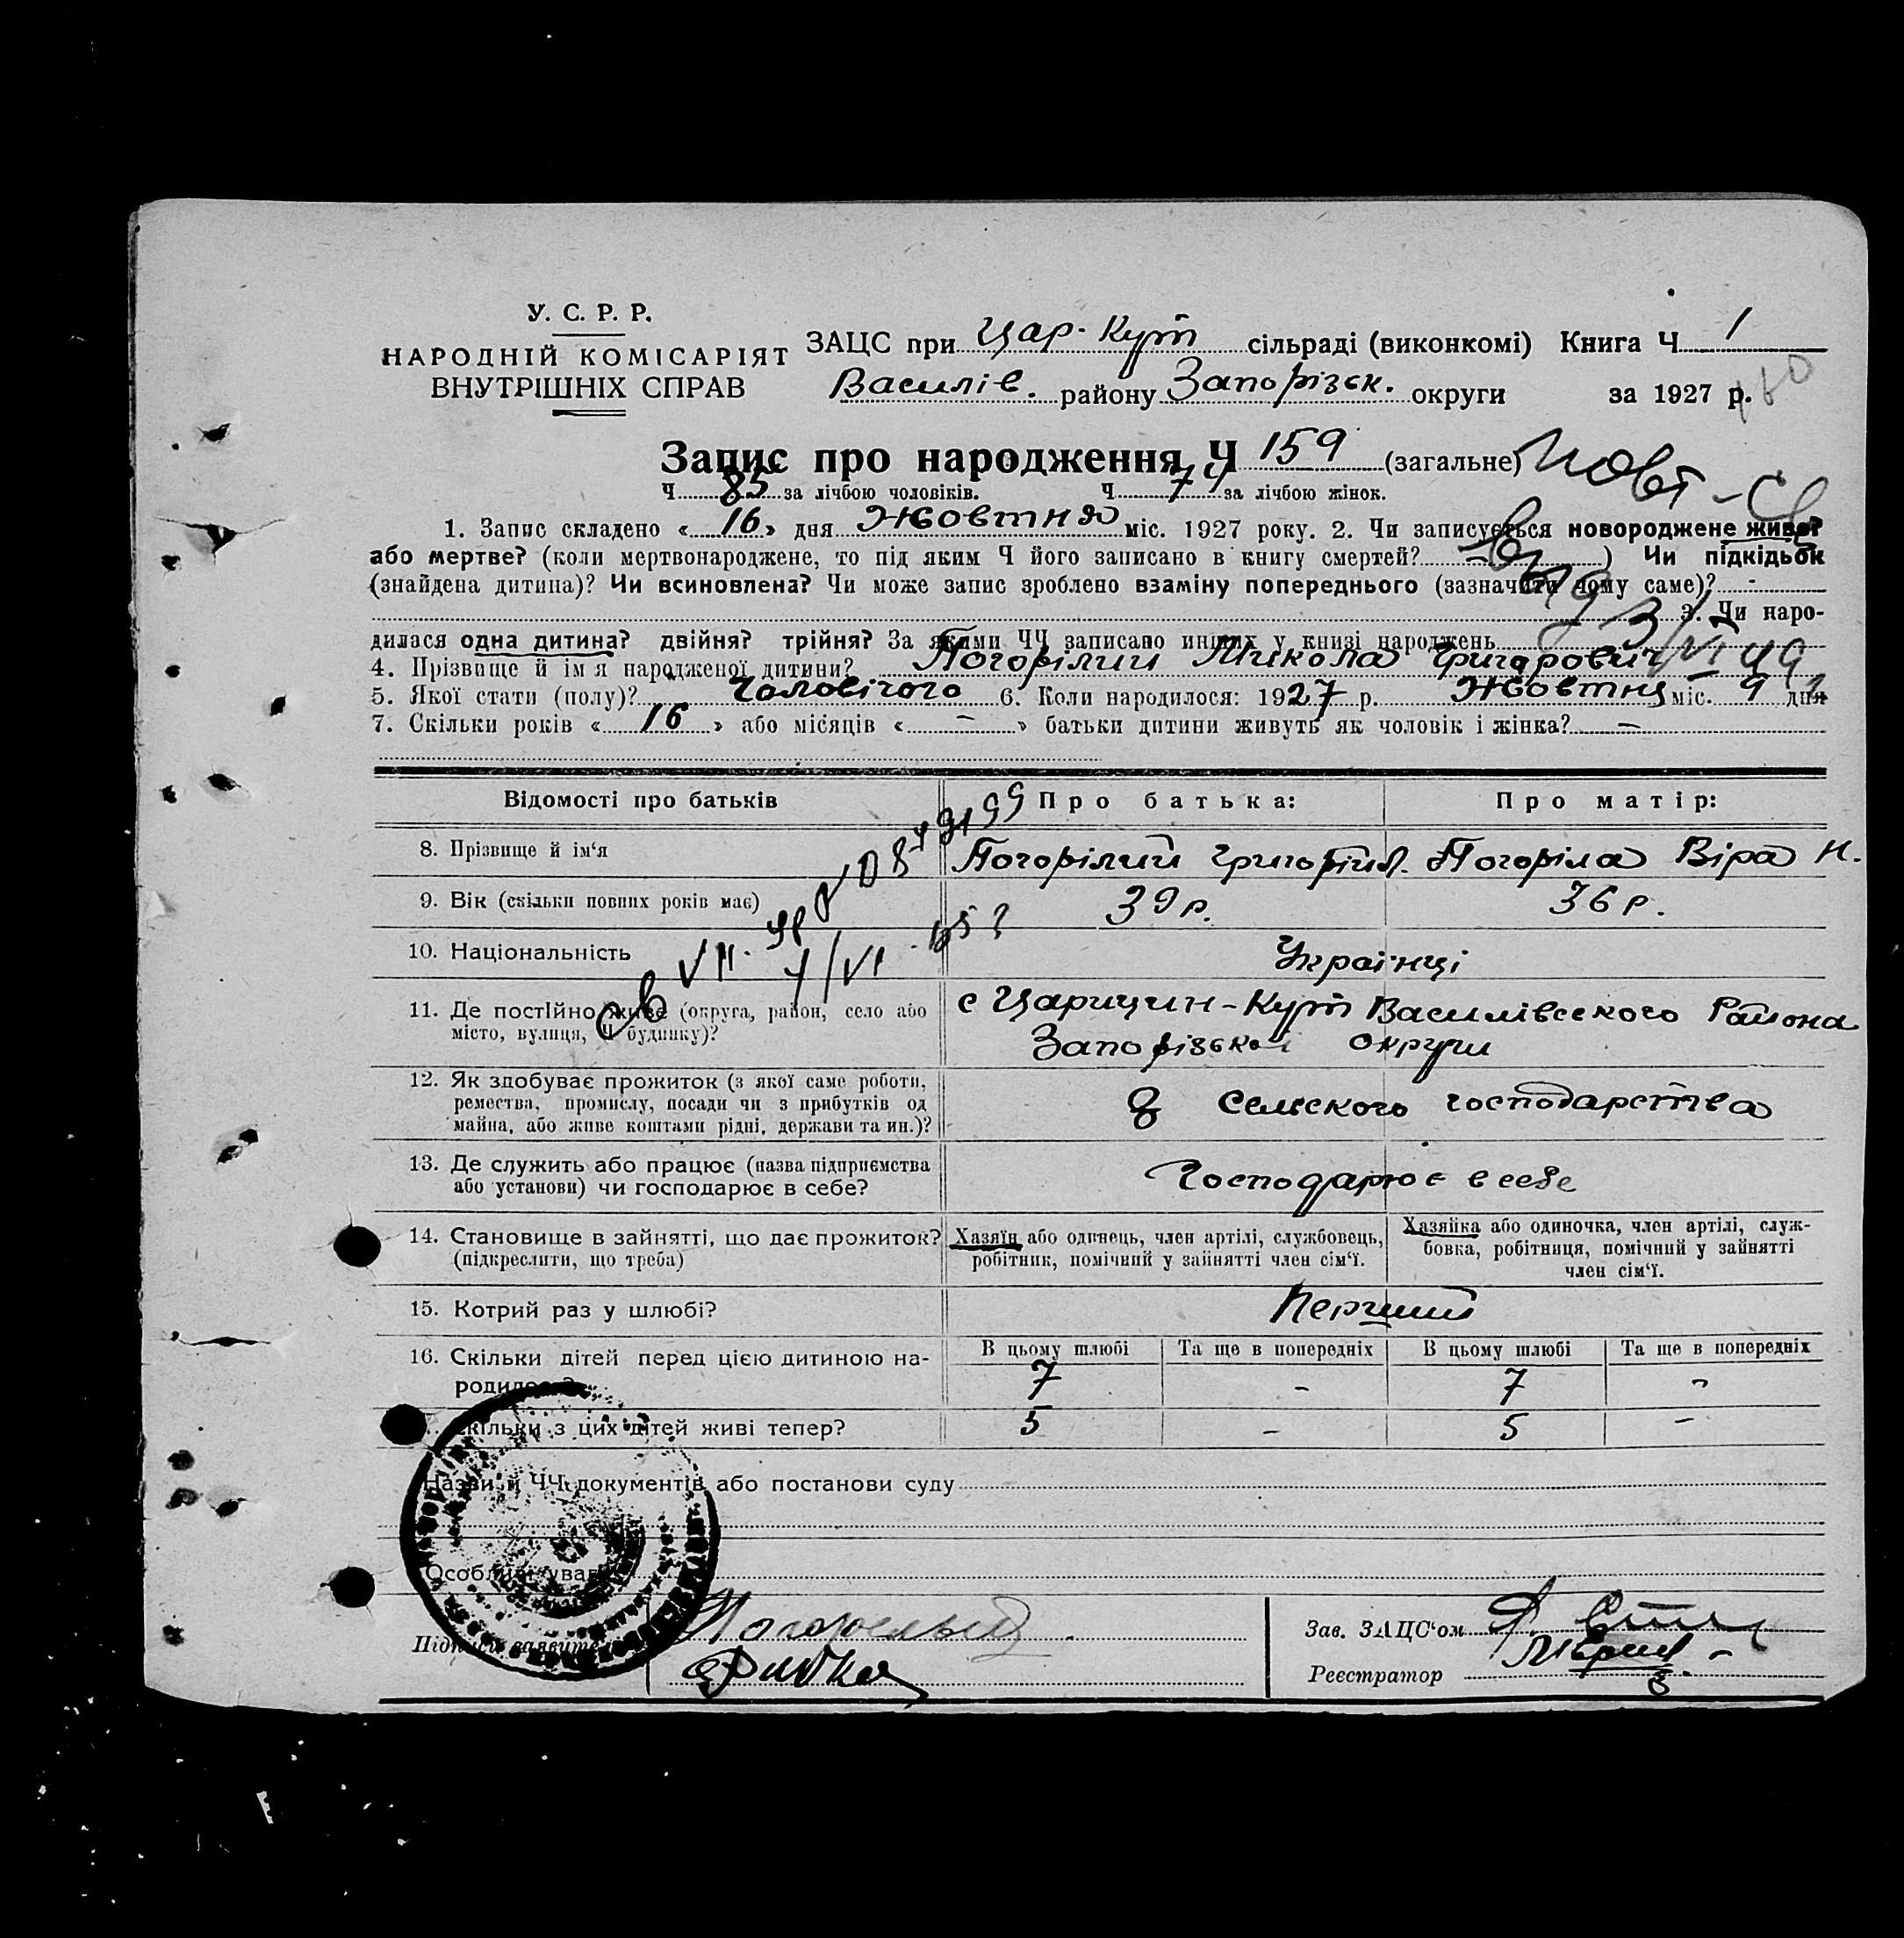 У. С. Р. Р.
НАРОДНІЙ КОМІСАРІЯТ
ВНУТРІШНІХ СПРАВ
ЗАЦС при Цар-Кут сільраді (виконкомі) Книга Ч 1
Василів. району Запорізьк. округи за 1927 р.
Запис про народження Ч 159 (загальне)
Ч 85 за лічбою чоловіків. Ч 74 за лічбою жінок.
Повт-Св
1. Запис складено «16» дня Жовтня міс. 1927 року. 2. Чи записується новороджене живе?
або мертве? (коли мертвонароджене, то під яким Ч його записано в книгу смертей? ) Чи підкідьок
(знайдена дитина)? Чи всиновлена? Чи може запис зроблено взаміну попереднього (зазначити чому саме)? -
3. Чи наро-
дилася одна дитина? двійня? трійня? За якими ЧЧ записано инших у книзі народжень
4. Прізвище й ім'я народженої дитини? Погорілий Микола Григорович
5. Якої стати (полу)? Чоловічого 6. Коли народилося: 1927 р. Жовтня міс. 9 дня
7. Скільки років «16» або місяців «-» батьки дитини живуть як чоловік і жінка? -
Відомості про батьків Про батька: Про матір:
8. Прізвище й ім'я Погорілий Григорій Погоріла Віра Н.
9. Вік (скільки повних років має) 39 р. 36 р.
10. Національність Українці
11. Де постійно живе (округа, район, село або
місто, вулиця, Ч будинку)?
с Царицин-Кут Василівського Района
Запорізької округи
12. Як здобуває прожиток (з якої саме роботи,
ремества, промислу, посади чи з прибутків од
майна, або живе коштами рідні, держави та ин.)?
З Сельского господарства
13. Де служить або працює (назва підприємства
або установи) чи господарює в себе?
Господарює в себе
14. Становище в зайнятті, що дає прожиток?
(підкреслити, що треба)
Хазяїн або одинець, член артілі, службовець,
робітник, помічний у зайнятті член сім'ї.
Хазяйка або одиночка, член артілі, служ-
бовка, робітниця, помічний у зайнятті
член сім'ї.
15. Котрий раз у шлюбі? Перший
16. Скільки дітей перед цією дитиною на-
родилося?
В цьому шлюбі Та ще в попередніх В цьому шлюбі Та ще в попередніх
7 - 7 -
Скільки з цих дітей живі тепер? 5 - 5 -
Назви й ЧЧ документів або постанови суду
Особливі уваги
Підписи заявителів Погорелый
Зав. ЗАЦС'ом
Реєстратор